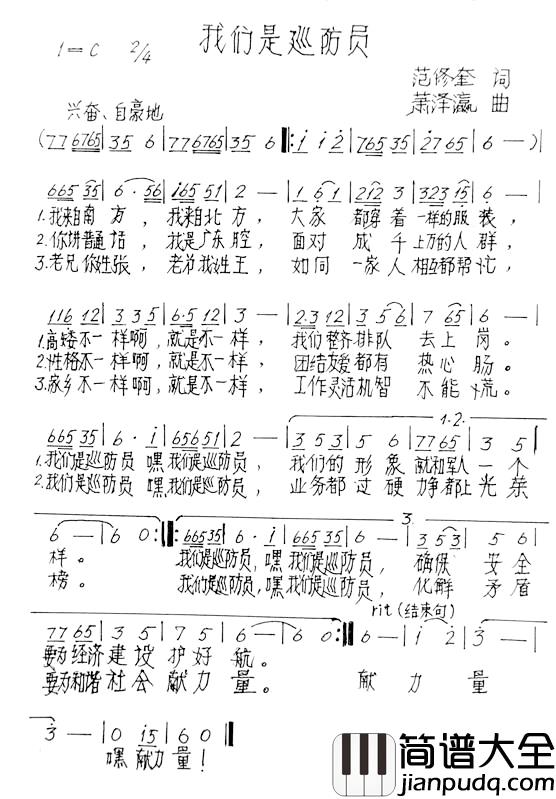 我们是巡防员
1=C 2/4
范修奎 词
萧泽瀛 曲
兴奋、自豪地
(77 6765 | 35 6 | 77 6765 | 35 6 ‖: i i 2 | 765 35 | 2765 | 6 —) |
665 35 | 6 · 56 | i65 51 | 2 — | 1 6 1 | 212 3 | 323 15 | 6 — |
1.我来自南方，我来自北方，大家都穿着一样的服装，
2.你讲普通话，我是广东腔，面对成千上万的人群，
3.老兄你姓张，老弟我姓王，如同一家人相互都帮忙，
116 12 | 3 3 5 | 6·5 12 | 3 — | 2·3 12 | 3 5 6 | 7 65 | 6 — |
1.高矮不一样啊，就是不一样，我们整齐排队去上岗。
2.性格不一样啊，就是不一样，团结友爱都有热心肠。
3.家乡不一样啊，就是不一样，工作灵活机智不能慌。
1.2.
665 35 | 6 · i | 65651 | 2 — | 3 5 3 | 5 6 | 77 65 | 3 5 |
1.我们是巡防员嘿，我们是巡防员，我们的形象就和军人一个
2.我们是巡防员嘿，我们是巡防员，业务都过硬力争都上光荣
3.
6 — | 6 0 :‖: 665 35 | 6 · i | 665 35 | 6 — | 3 5 3 | 5 6 |
样。我们是巡防员，嘿我们是巡防员，确保安全
榜。我们是巡防员，嘿我们是巡防员，化解矛盾
rit (结束句)
77 65 | 3 5 | 7 5 | 6 — | 6 0 :‖ 6 — | i 2 | 3 — |
要为经济建设护好航。
要为和谐社会献力量。献力量
3 — | 0 i5 | 6 0 ‖
嘿献力量！
简谱大全
jianpudq.com